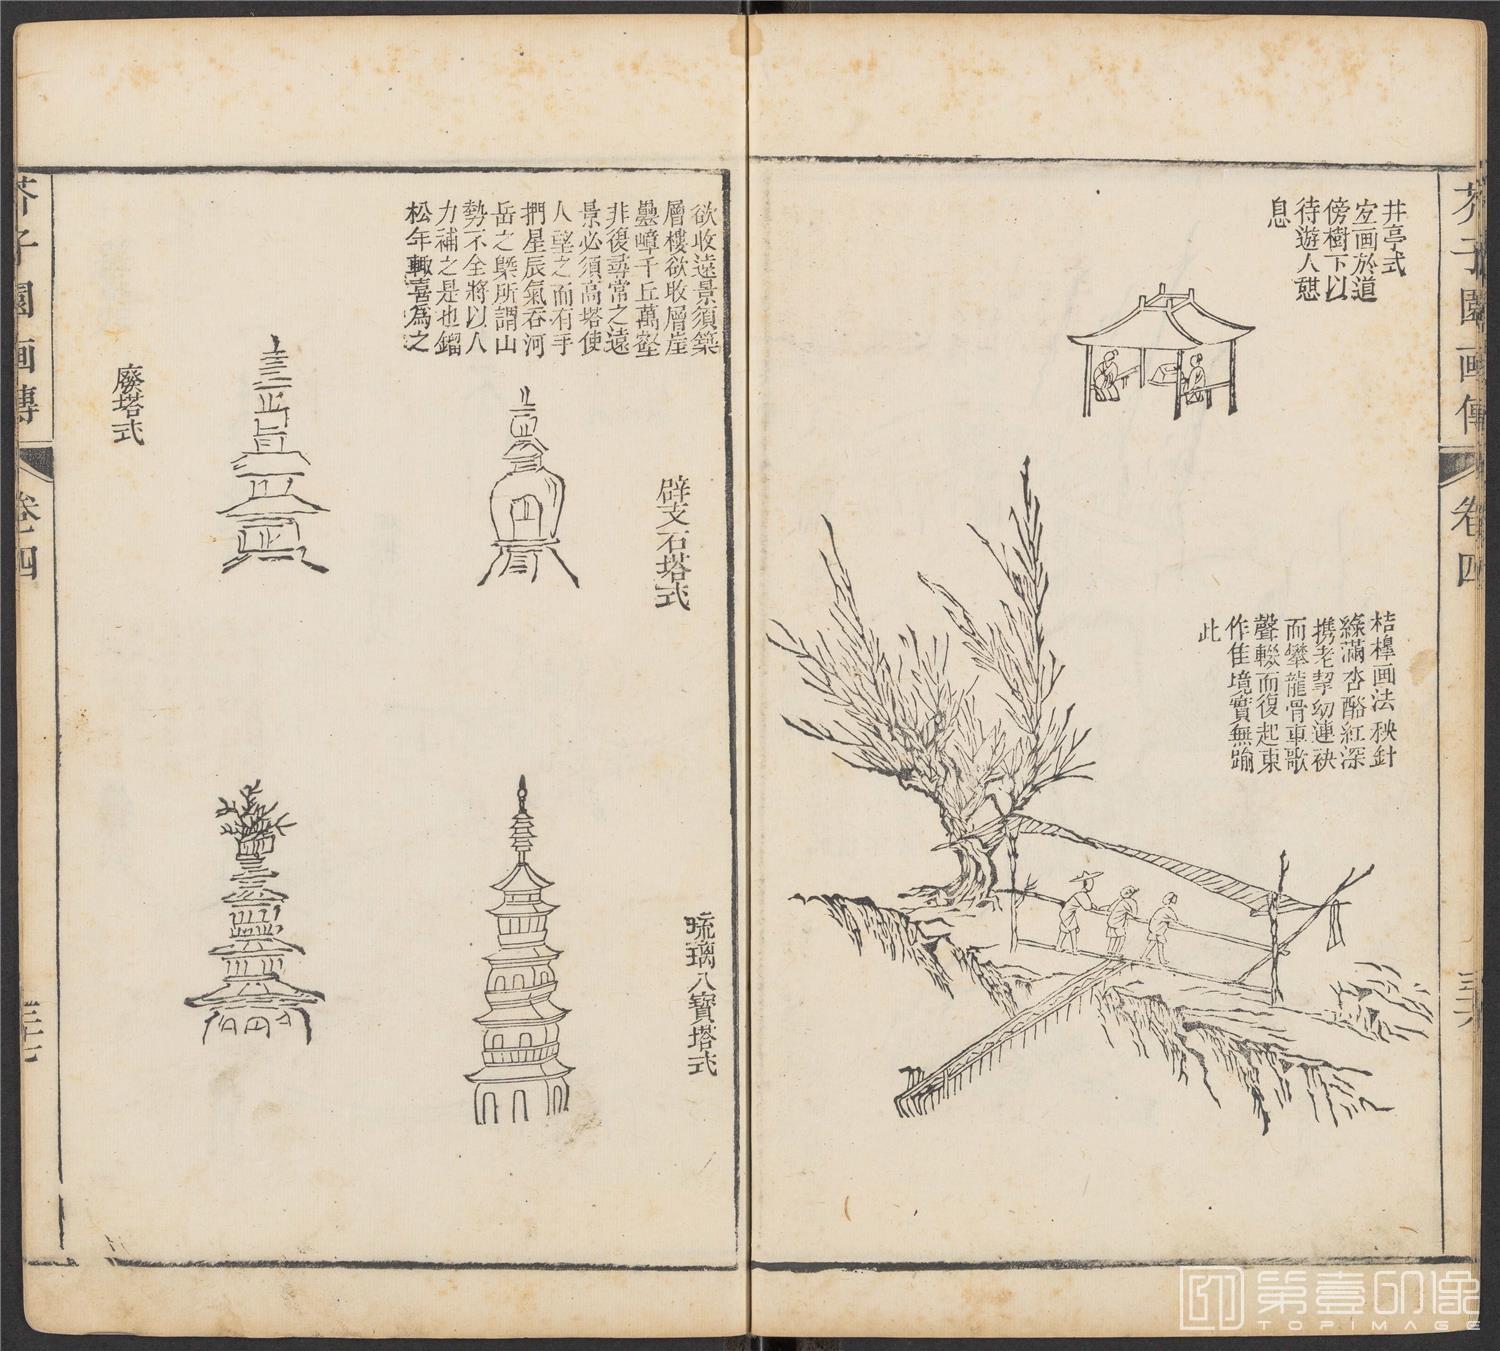 芥子園画傳
卷四
三十六
井亭式
宜画於道
傍樹下以
待遊人憇
息
桔槹画法秧針
綠滿杏酪紅深
攜老挈幼連袂
而攀龍骨車歌
聲輟而復起東
作佳境實無踰
此
欲收遠景須築
層樓欲收層崖
疊嶂千丘萬壑
非復尋常之遠
景必須高塔使
人望之而有手
捫星辰氣吞河
岳之槩所謂山
勢不全將以人
力補之是也鎦
松年輙喜為之
辟支石塔式
琉璃八寶塔式
廢塔式
芥子園画傳
卷四
三十七
第壹印像
TOPIMAGE